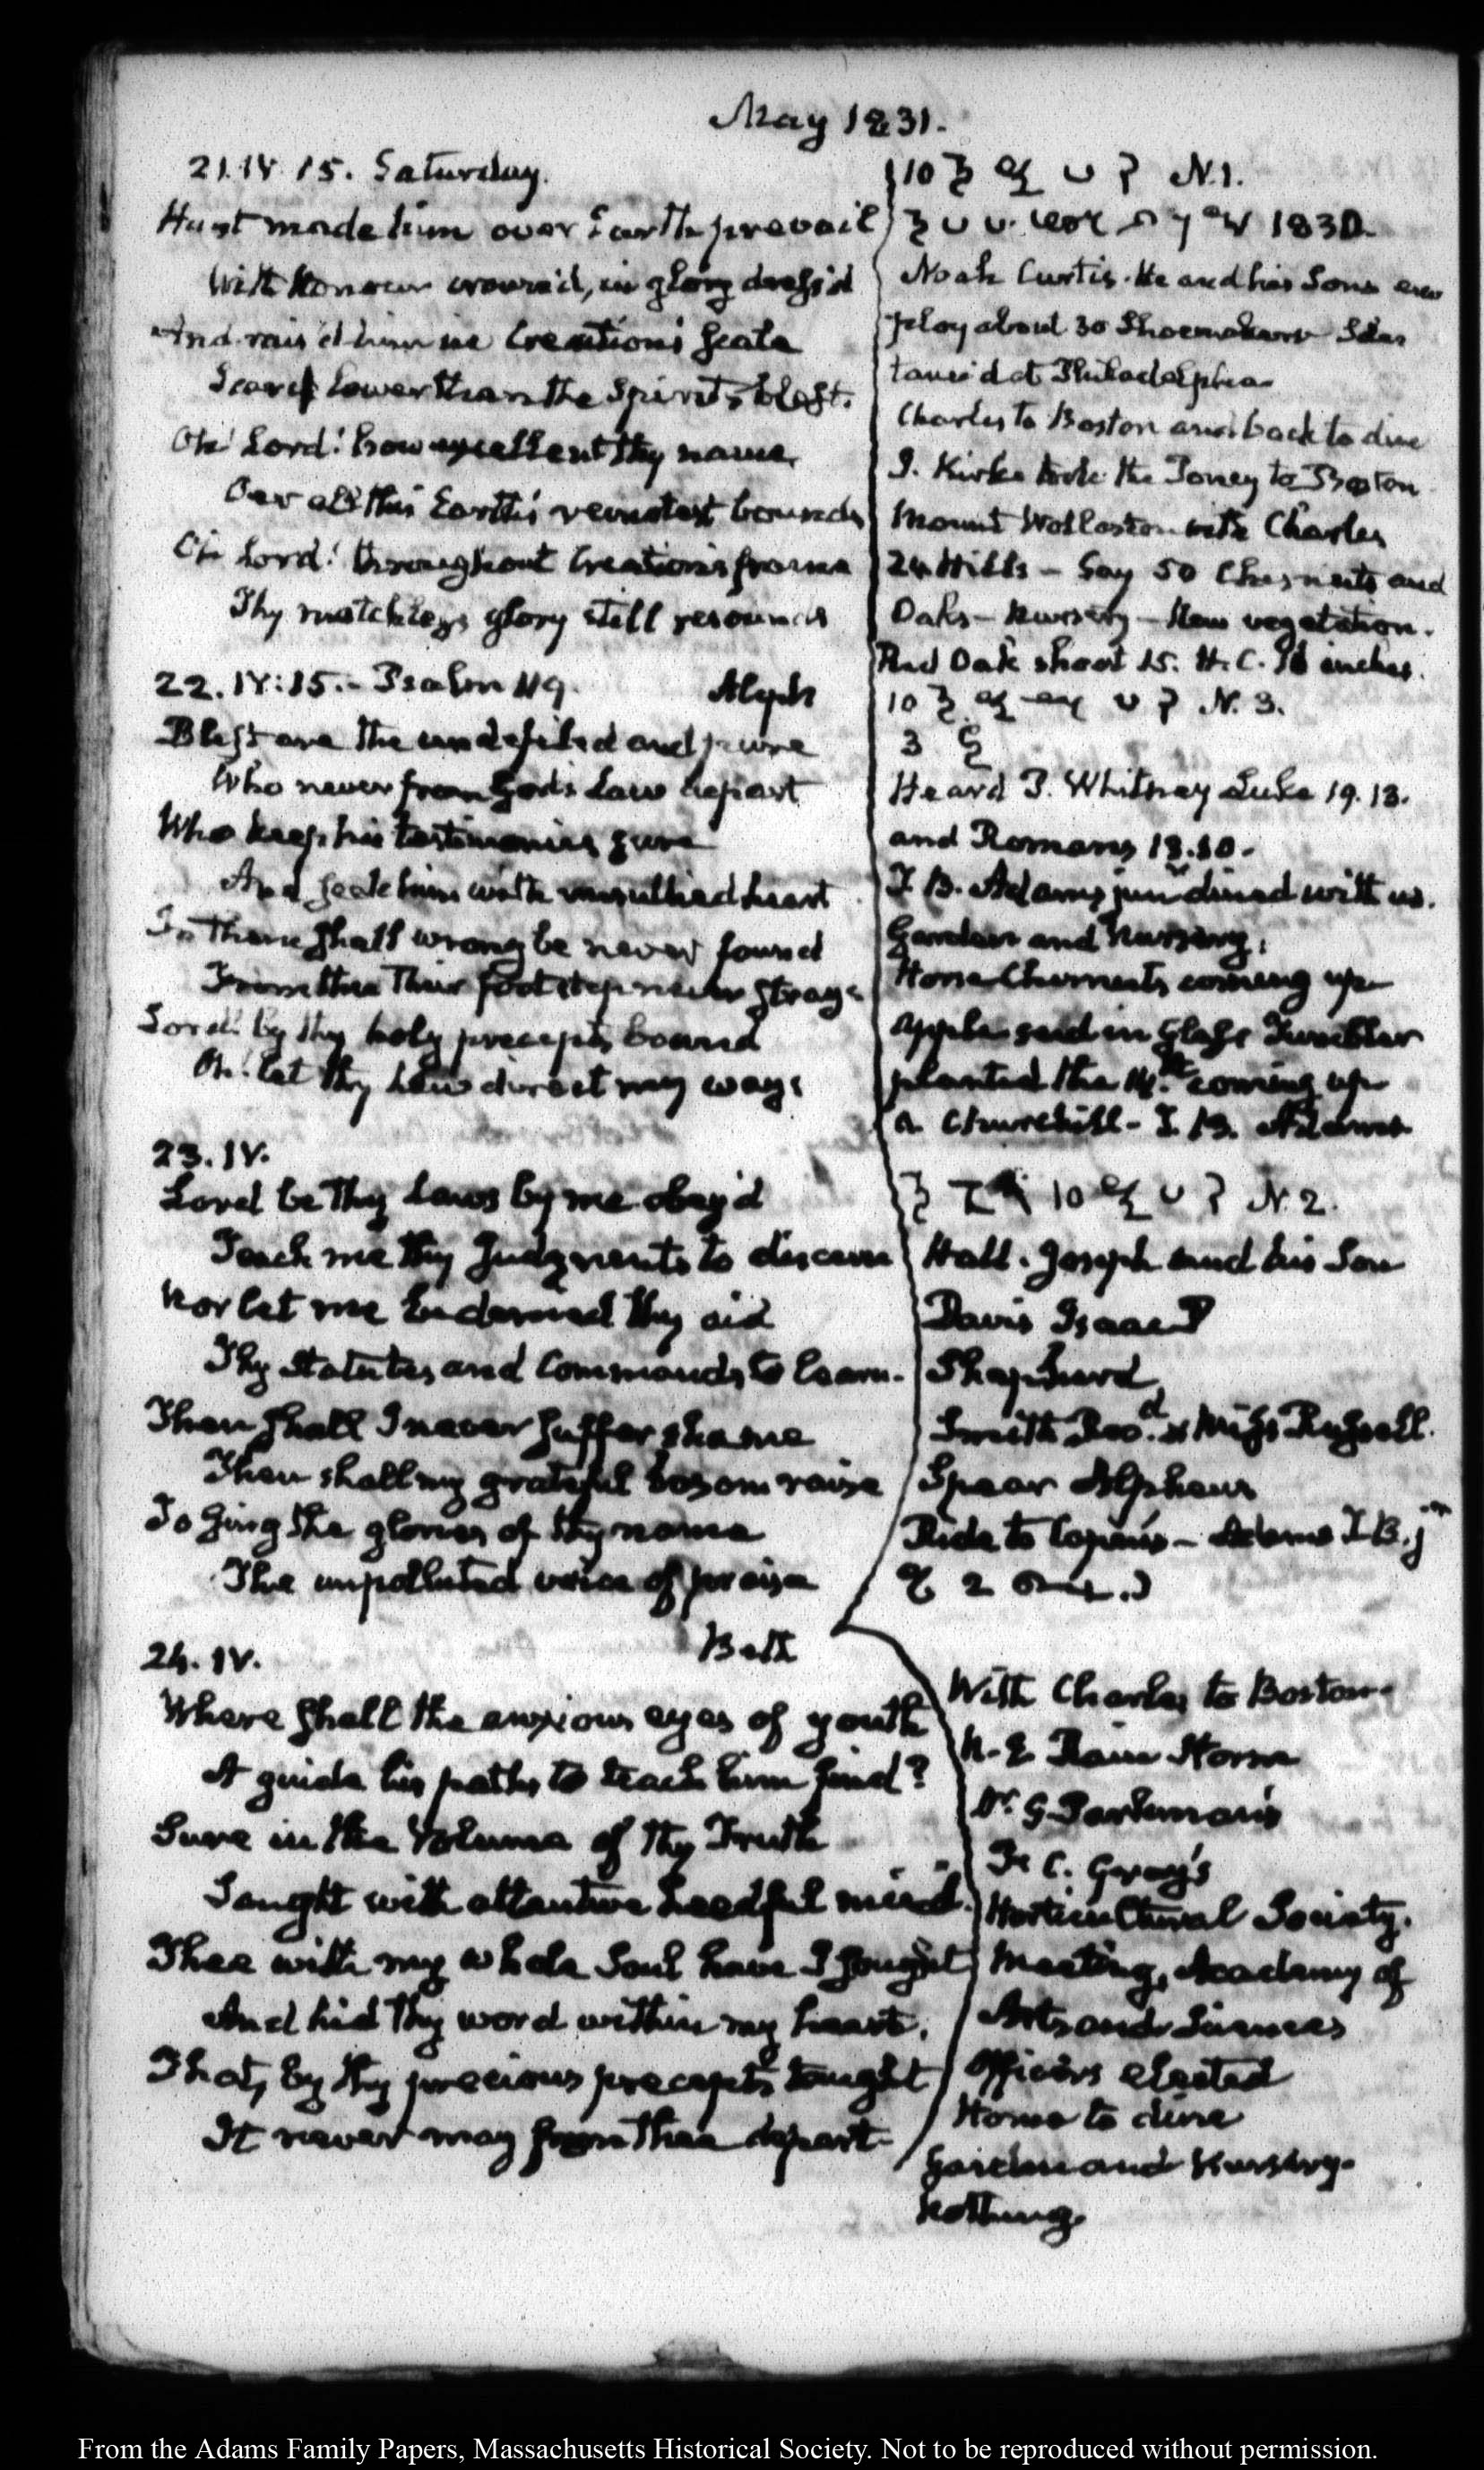 May 1831.
21. IV. 15. Saturday.
Hast made him over Earth prevail
With Honour crown'd, in glory dress'd
And rais'd him in Creation's Scale
Scarce lower than the Spirits blest.
Oh Lord! how excellent thy name
O'er all this Earth's remotest bounds
Oh Lord! throughout Creation's frame
Thy matchless glory still resounds
22. IV:15.- Psalm 119. Aleph
Blest are the undefiled and pure
Who never from God's Law depart
Who keep his testimonies sure
And seek him with unsullied heart
In them shall wrong be never found
From thee their footsteps never stray
Lord! by thy holy precepts bound
Oh! let thy Law direct my ways
23. IV.
Lord be thy Laws by me obey'd
Teach me thy Judgments to discern
Nor let me be denied thy aid
Thy Statutes and Commands to learn.
Then shall I never suffer shame
Then shall my grateful bosom raise
To Sing the glories of thy name
The unpolluted voice of praise
24. IV. Beth
Where shall the anxious eyes of youth
A guide his paths to teach him find?
Sure in the Volume of thy Truth
Sought with attentive heedful mind.
Thee with my whole Soul have I sought
And hid thy word within my heart.
That, by thy precious precepts taught
It never may from thee depart.
10 N. 1.
1830.
Noah Curtis. He and his Sons em
ploy about 30 Shoemakers
at Philadelphia
Charles to Boston and back to dine
I. Kirke took the Poney to Boston
Mount Wollaston with Charles
24 Hills - Say 50 Chesnuts and
Oaks - Nursery - New vegetation.
Red Oak shoot 15. H. C. inches.
10 N. 3.
3
Heard P. Whitney Luke 19. 13.
and Romans
T. B. Adams junr. dined with us.
Garden and Nursery.
Horse Chesnuts coming up
Apple seed in Glass Tumbler
planted the 14th. coming up
a Churchill - T. B. Adams
10 N. 2.
Hall. Joseph and his Son
Davis Isaac P
Shepherd
Smith & Miss Russell.
Spear Alpheus
Ride to - Adams T. B. jr
2
With Charles to Boston.
N. E. Rain Storm
Dr. G. Parkman's
F. C. Gray's
Horticultural Society.
Meeting, Academy of
Arts and Sciences
Officers elected
Home to dine
Garden and Nursery.
Nothing.
From the Adams Family Papers, Massachusetts Historical Society. Not to be reproduced without permission.